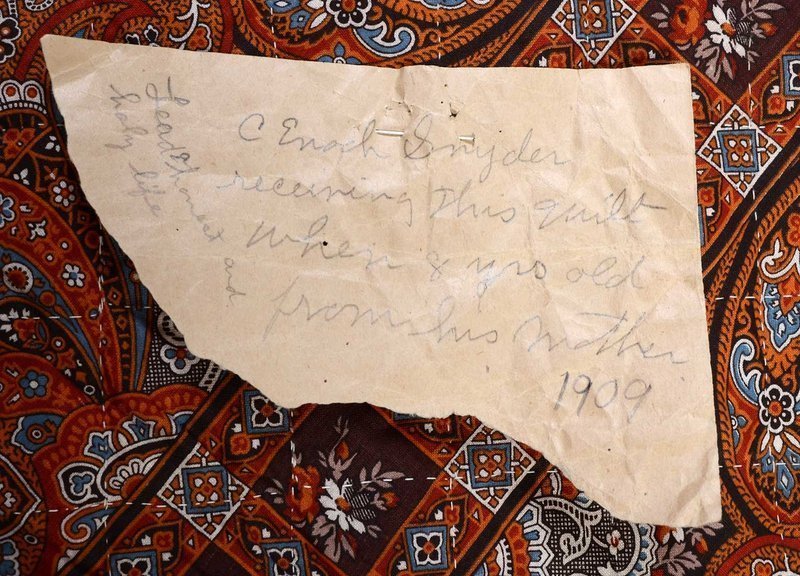 C Enoch Snyder
receiving this quilt
when 8 yrs old
from his Mother
1909
Lead honest and
holy life